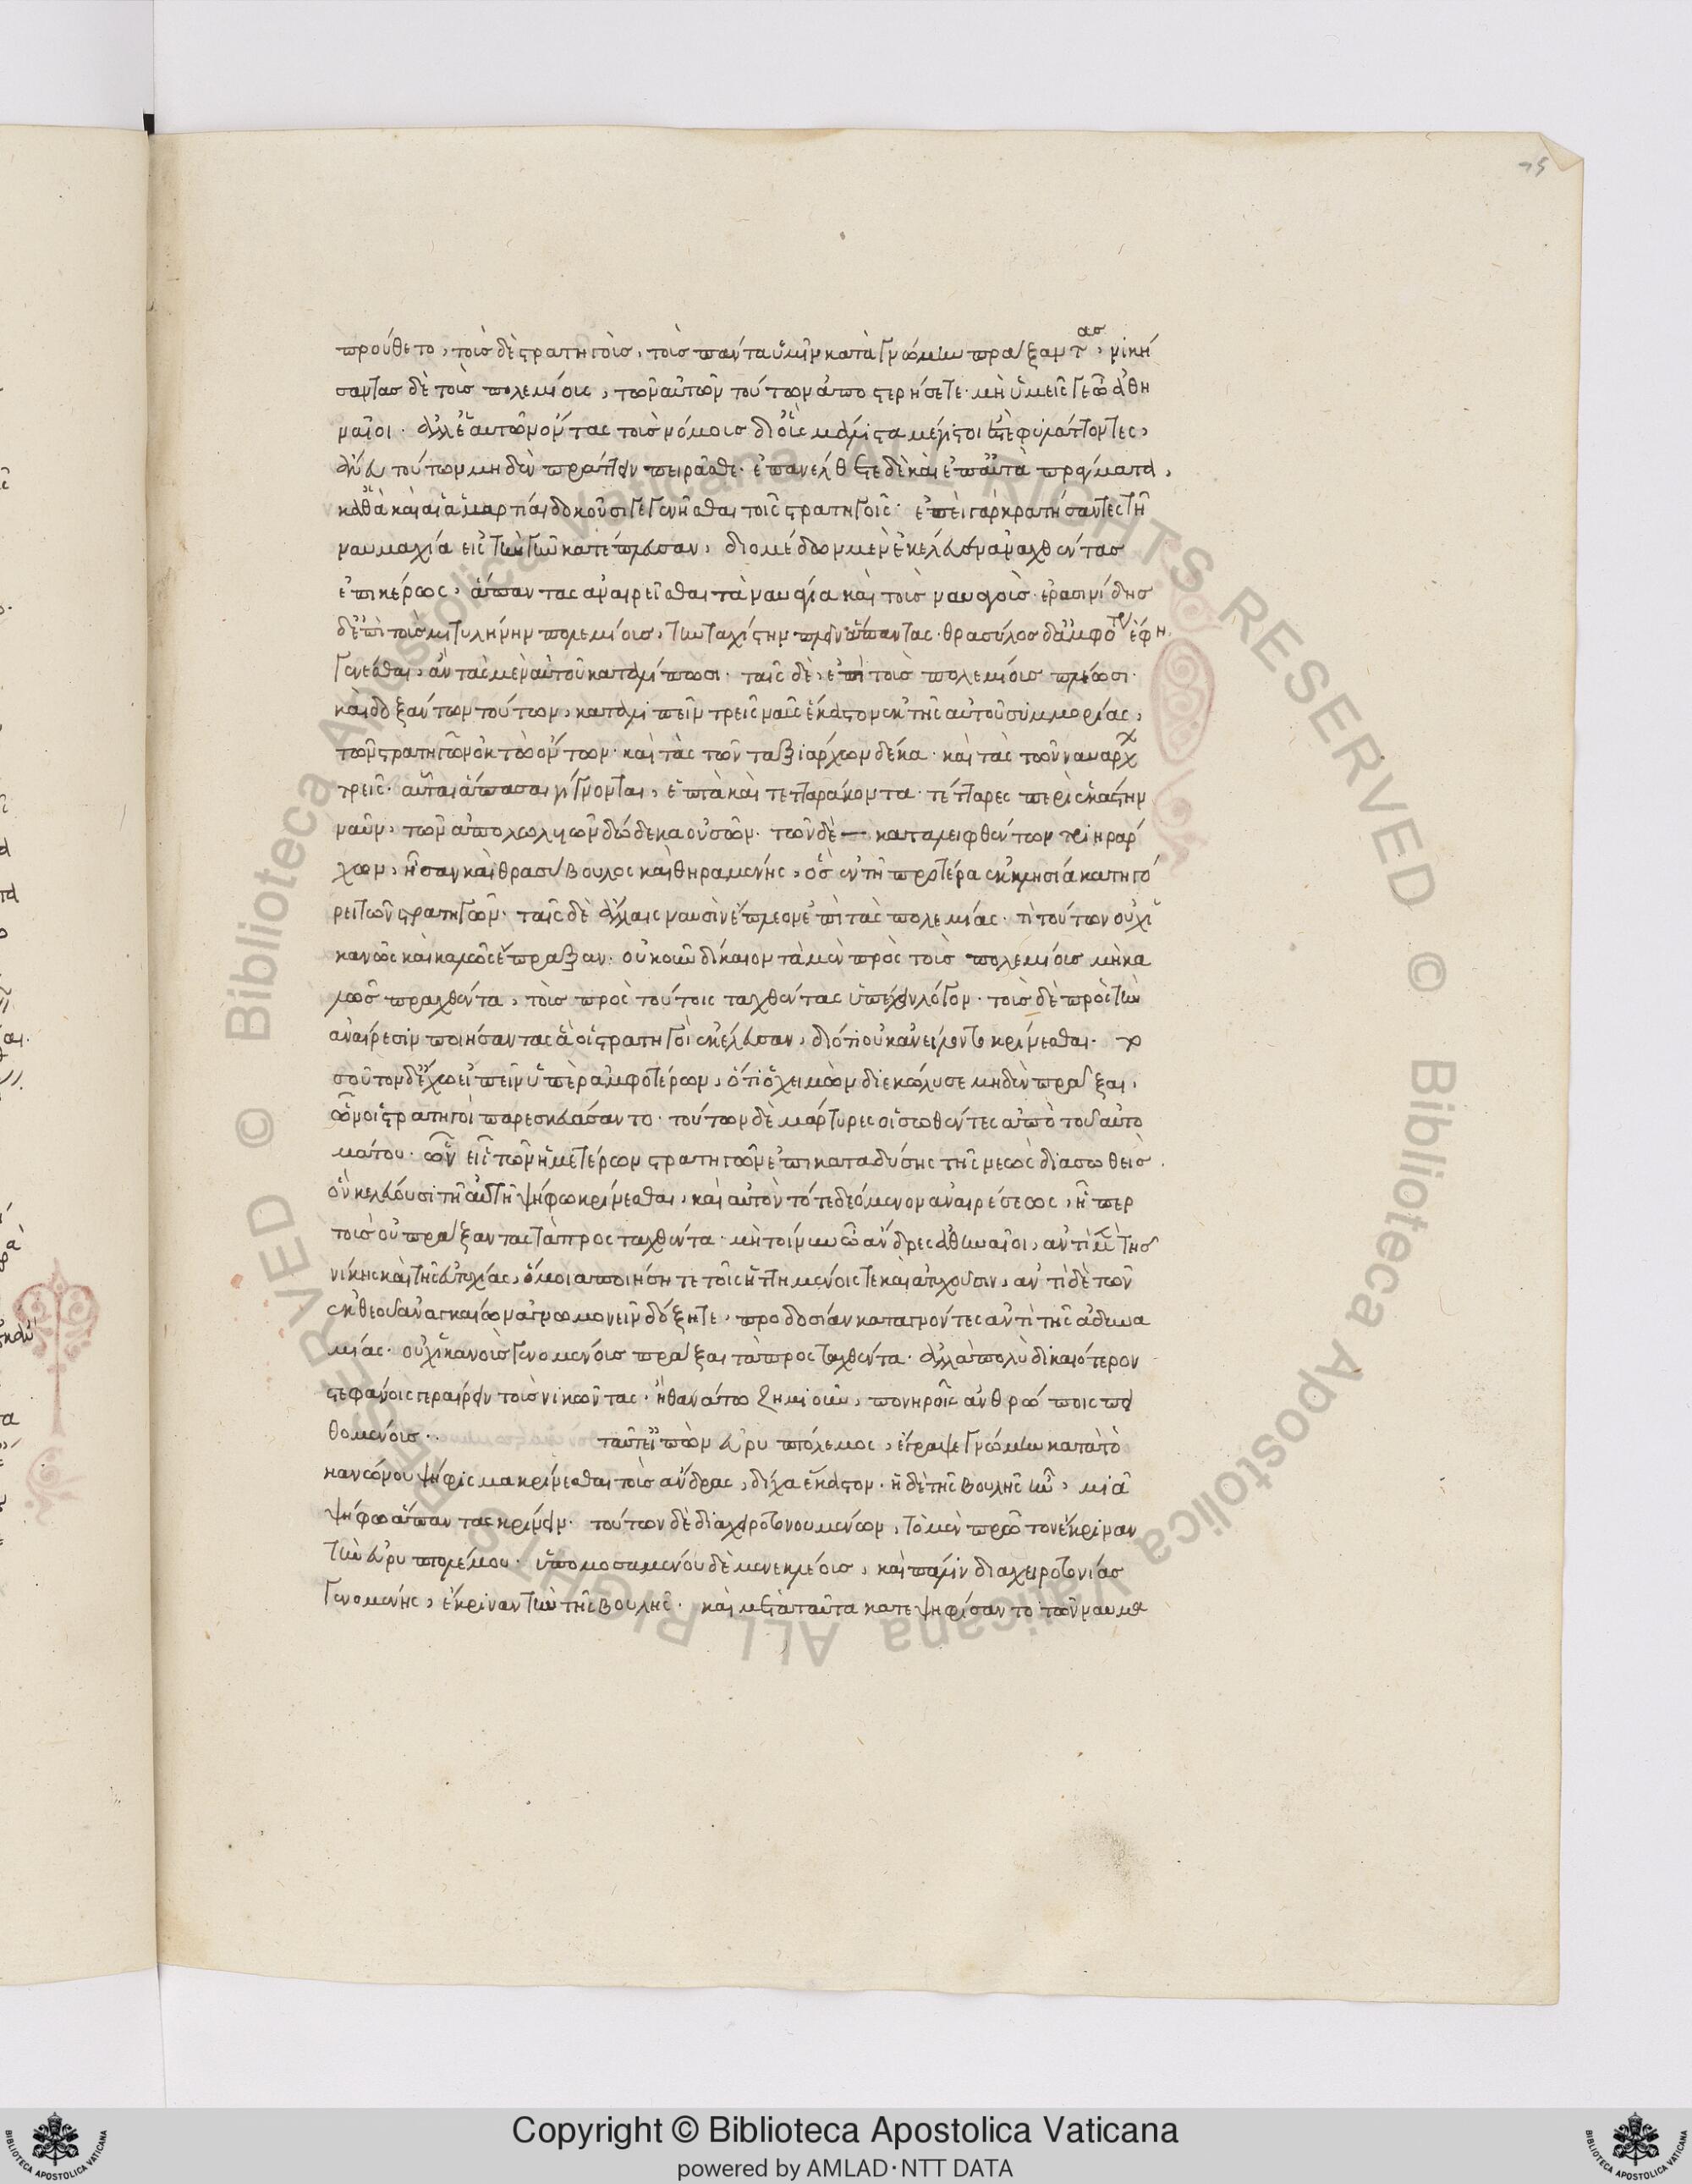 75
προύθετο, τοὺς δὲ στρατηγοὺς, τοὺς πάντα ὑμῖν κατὰ γνώμην πράξαντας, νική
σαντας δὲ τοὺς πολεμίους, τῶν αὐτῶν τούτων ἀποστερήσετε. μὴ ὑμεῖς γε ὦ ἀθη
ναῖοι. ἀλλ' ἑαυτῶν ὄντας τοὺς νόμους δι' οὓς μάλιστα μέγιστοί ἐστε φυλάττοντες,
ἄνευ τούτων μηδὲν πράττειν πειρᾶσθε. ἐπανέλθετε δὲ καὶ ἐπ' αὐτὰ πράγματα,
καθ' ἃ καὶ αἱ ἁμαρτίαι δοκοῦσι γεγενῆσθαι τοῖς στρατηγοῖς. ἐπεὶ γὰρ κρατήσαντες τῆ
ναυμαχία εἰς τὴν γῆν κατέπλευσαν, διομέδων μὲν ἐκέλευεν ἀναχθέντας
ἐπικέρως, ἅπαντας ἀναιρεῖσθαι τὰ ναυάγια καὶ τοὺς ναυαγοὺς. ἐρασινίδης
δ' ἐπὶ τοὺς μιτυλήνην πολεμίους, τὴν ταχίστην πλεῖν ἅπαντας. θράσυλος δ' ἀμφότερ' ἔφη
γενέσθαι, ἂν τὰς μὲν αὐτοῦ καταλίπωσι. ταῖς δὲ, ἐπὶ τοὺς πολεμίους πλέωσι.
καὶ δοξάντων τούτων, καταλιπεῖν τρεῖς ναῦς ἕκαστον ἐκ τῆς αὐτοῦ συμμορίας,
τῶν στρατηγῶν ὀκτὼ ὄντων. καὶ τὰς τῶν ταξιάρχων δέκα. καὶ τὰς τῶν ναυάρχ
τρεῖς. αὗται ἅπασαι γίγνονται, ἑπτὰ καὶ τετταράκοντα. τέτταρες περὶ ἑκάστην
ναῦν, τῶν ἀπολωλυιῶν δώδεκα οὐσῶν. τῶν δὲ — καταλειφθέντων τριηράρ
χων, ἦσαν καὶ θρασύβουλος καὶ θηραμένης, ὃς ἐν τῇ προτέρα ἐκκλησία κατηγό
ρει τῶν στρατηγῶν. ταῖς δὲ ἄλλαις ναυσὶν ἔπλεον ἐπὶ τὰς πολεμίας. τί τούτων οὐχ ἱ
κανῶς καὶ καλῶς ἔπραξαν. οὐκοῦν δίκαιον τὰ μὲν πρὸς τοὺς πολεμίους μὴ κα
λῶς πραχθέντα, τοὺς πρὸς τούτοις ταχθέντας ὑπέχειν λόγον. τοὺς δὲ πρὸς τὴν
ἀναίρεσιν ποιήσαντας ἃ οἱ στρατηγοὶ ἐκέλευσαν, διότι οὐκ ἀνείλοντο κρίνεσθαι. το
σοῦτον δ' ἔχω εἰπεῖν ὑπὲρ ἀμφοτέρων, ὅτι ὁ χειμὼν διεκώλυσε μηδὲν πράξαι,
ὧν οἱ στρατηγοὶ παρεσκευάσαντο. τούτων δὲ μάρτυρες οἱ σωθέντες ἀπὸ τοῦ αὐτο
μάτου. ὧν εἷς τῶν ἡμετέρων στρατηγῶν ἐπὶ καταδύσης τῆς νεὼς διασωθεὶς.
ὃν κελεύουσι τῆ αὐτῆ ψήφω κρίνεσθαι, καὶ αὐτὸν τότε δεόμενον ἀναιρέσεως, ἧπερ
τοὺς οὐ πράξαντας τὰ προσταχθέντα. μὴ τοίνυν ὦ ἄνδρες ἀθηναῖοι, ἀντὶ μὲν τῆς
νίκης καὶ τῆς εὐτυχίας, ὅμοια ποιήσητε τοῖς ἡττημένοις τε καὶ ἀτυχοῦσιν, ἀντὶ δὲ τῶν
ἐκ θεοῦ ἀναγκαίων ἀγνωμονεῖν δόξητε, προδοσίαν καταγνόντες ἀντὶ τῆς ἀδυνα
μίας. οὐχ ἱκανοὺς γενομένους πράξαι τὰ προσταχθέντα. ἀλλὰ πολὺ δικαιότερον
στεφάνοις γεραίρειν τοὺς νικῶντας. ἢ θανάτω ζημιοῦν, πονηροῖς ἀνθρώποις πει
θομένους.. ταῦτ' εἰπὼν εὐρυπτόλεμος, ἔγραψε γνώμην κατὰ τὸ
καννώνου ψήφισμα κρίνεσθαι τοὺς ἄνδρας, δίχα ἕκαστον. ἡ δὲ τῆς βουλῆς ἦν, μιᾶ
ψήφω ἅπαντας κρίνειν. τούτων δὲ διαχειροτονουμένων, τὸ μὲν πρῶτον ἔκριναν
τὴν εὐρυπτολέμου. ὑπομοσαμένου δὲ μενεκλέους, καὶ πάλιν διαχειροτονίας
γενομένης, ἔκριναν τὴν τῆς βουλῆς. καὶ μετὰ ταῦτα κατεψηφίσαντο τῶν ναυμα
Copyright © Biblioteca Apostolica Vaticana
powered by AMLAD·NTT DATA